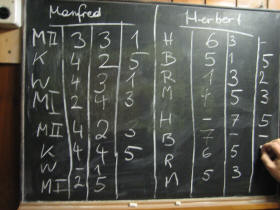 Manfred
MII 3 3 1
K 4 2 5
W 4 1 1
MI 2 4 3
MII 4 2 3
K 4 4 5
W - 1
MI 2 5
Herbert
H 6 3 -
B 5 1 5
R 1 3 2
M 4 5 3
H - 7 -
B 7 - 5
R 6 5 -
M 5 3